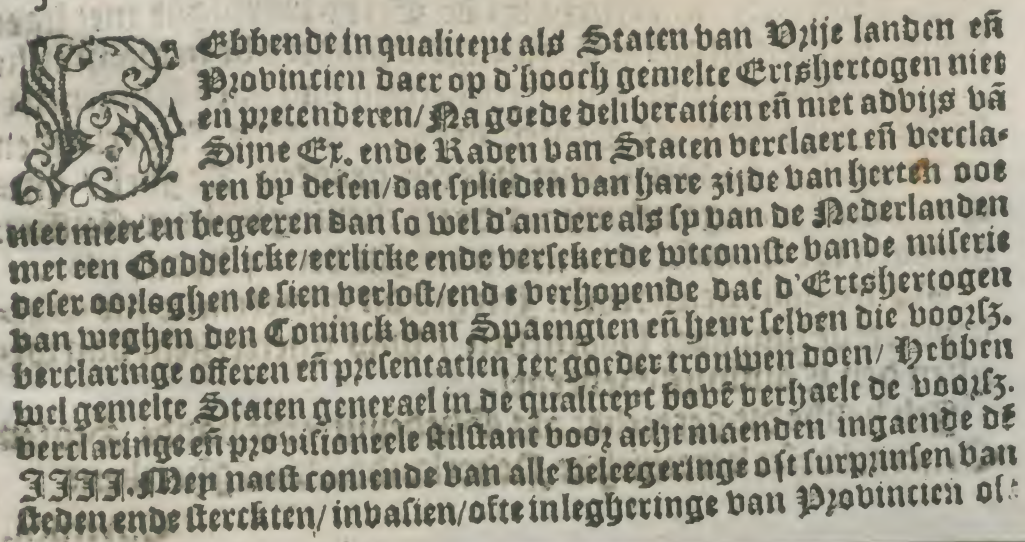 HEbbende in qualiteyt als Staten van Vrije landen eñ
Provintien daer op d'hooch gemelte Ertshertogen niet
en pretenderen/ Na goede deliberatien eñ met advijs vã
Sijne Ex. ende Raden van Staten verclaert eñ vercla-
ren by desen/dat sylieden van hare zijde van herten ooc
niet meer en begeeren dan so wel d'andere als sy van de Nederlanden
met een Goddelicke/eerlicke ende versekerde wtcomste vande miserie
deser oorloghen te sien verlost/ende verhopende dat d'Ertshertogen
van weghen den Coninck van Spaengien eñ heur selven die voorsz.
verclaringe offeren eñ presentatien ter goeder trouwen doen/ Hebben
wel gemelte Staten generael in de qualiteyt bovẽ verhaelt de voorsz.
verclaringe eñ provisioneele stilstant voor acht maenden ingaende dẽ
IIII. Mey naest comende van alle beleegeringe oft surprinsen van
steden ende sterckten/ invasien/ofte inlegheringe van Provincien oft